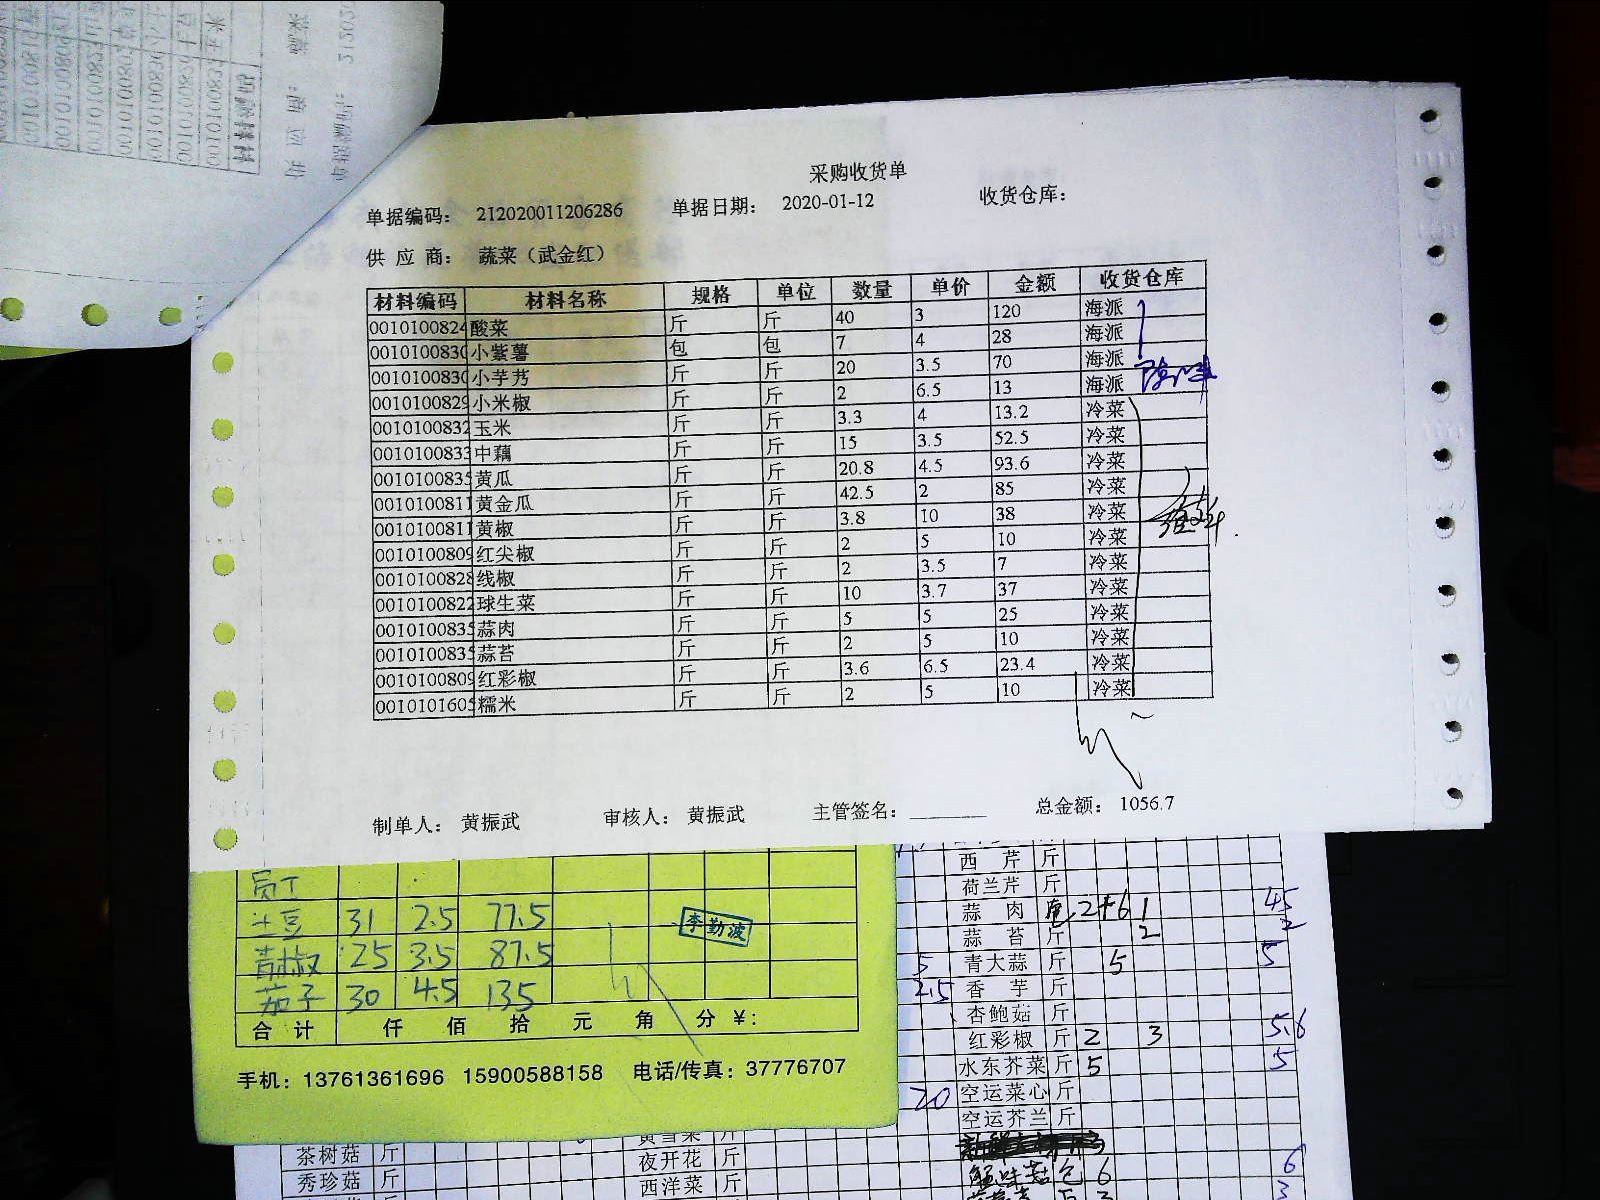 采购收货单
单据编码： 212020011206286 单据日期： 2020-01-12 收货仓库：
供 应 商： 蔬菜（武金红）
材料编码 材料名称 规格 单位 数量 单价 金额 收货仓库
0010100824 酸菜 斤 斤 40 3 120 海派
0010100830 小紫薯 包 包 7 4 28 海派
0010100830 小芋艿 斤 斤 20 3.5 70 海派
0010100829 小米椒 斤 斤 2 6.5 13 海派
0010100832 玉米 斤 斤 3.3 4 13.2 冷菜
0010100833 中藕 斤 斤 15 3.5 52.5 冷菜
0010100835 黄瓜 斤 斤 20.8 4.5 93.6 冷菜
0010100811 黄金瓜 斤 斤 42.5 2 85 冷菜
0010100811 黄椒 斤 斤 3.8 10 38 冷菜
0010100809 红尖椒 斤 斤 2 5 10 冷菜
0010100828 线椒 斤 斤 2 3.5 7 冷菜
0010100822 球生菜 斤 斤 10 3.7 37 冷菜
0010100835 蒜肉 斤 斤 5 5 25 冷菜
0010100835 蒜苔 斤 斤 2 5 10 冷菜
0010100809 红彩椒 斤 斤 3.6 6.5 23.4 冷菜
0010101605 糯米 斤 斤 2 5 10 冷菜
制单人： 黄振武 审核人： 黄振武 主管签名： 总金额： 1056.7
员工
土豆 31 2.5 77.5
青椒 25 3.5 87.5
茄子 30 4.5 135
李勤波
合 计 仟 佰 拾 元 角 分 ¥:
手机：13761361696 15900588158 电话/传真：37776707
西 芹 斤
荷兰芹 斤
蒜 肉 2+6 1 45
蒜 苔 斤 2 2
5 青大蒜 斤 5 5
2.5 香 芋 斤
杏鲍菇 斤
红彩椒 斤 2 3 5.6
水东芥菜 斤 5 5
20 空运菜心 斤
空运芥兰 斤
蟹味菇 包 6 6
茶树菇 斤
秀珍菇 斤
黄雪菜 斤
夜开花 斤
西洋菜 斤